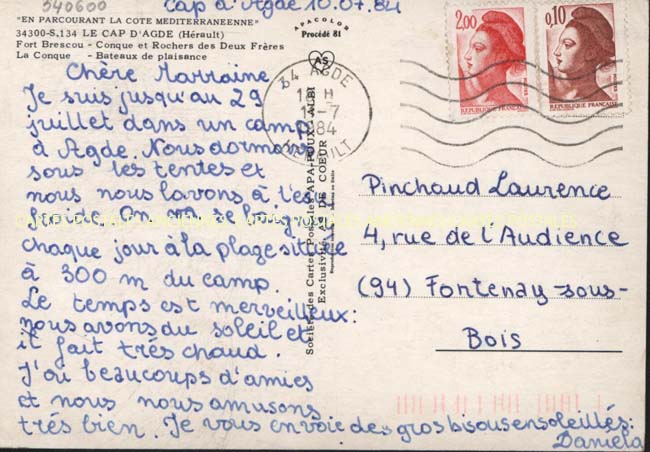 540600
Cap d'Agde 10.07.84
"EN PARCOURANT LA COTE MEDITERRANEENNE"
34300-S,134 LE CAP D'AGDE (Hérault)
Fort Brescou - Conque et Rochers des Deux Frères
La Conque - Bateaux de plaisance
APACOLOR
Procédé 81
AS
Chère Marraine
Je suis jusqu'au 29
juillet dans un camp
à Agde. Nous dormons
sous les tentes et
nous nous lavons à l'eau
froide. On va se baigner
chaque jour à la plage située
à 300 m du camp.
Le temps est merveilleux:
nous avons du soleil et
il fait très chaud.
J'ai beaucoups d'amies
et nous nous amusons
très bien. Je vous envoie des gros bisous ensoleillés:
Daniela
34 AGDE
-7
1984
HERAULT
Société des Cartes Postales APA-POUX - ALBI
Exclusivité AS DE COEUR
2,00
REPUBLIQUE FRANÇAISE
0,10
REPUBLIQUE FRANÇAISE
Pinchaud Laurence
4, rue de l'Audience
(94) Fontenay-sous-
Bois